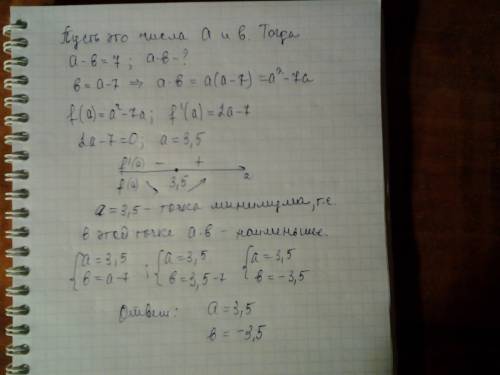 Пусть это числа а и в. Тогда
а-в=7 ; а·в-?
в=а-7 ⇒ а·в = а(а-7) = а²-7а
f(a)=a²-7a; f'(a)=2a-7
2a-7=0; a=3,5
f'(a) - +
f(a) 3,5 a
а=3,5 - точка минимума, т.е.
в этой точке а·в - наименьшее.
{а=3,5 ; {а=3,5 {а=3,5
{в=а-7 {в=3,5-7 {в=-3,5
Ответ: а=3,5
в=-3,5